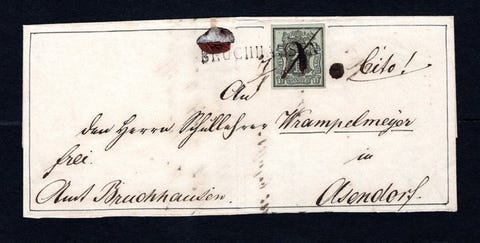 BRUCHHA
Cito!
An
den Herrn Schullehrer Wrampelmeyer
frei
in
Amt Bruchhausen. Asendorf.